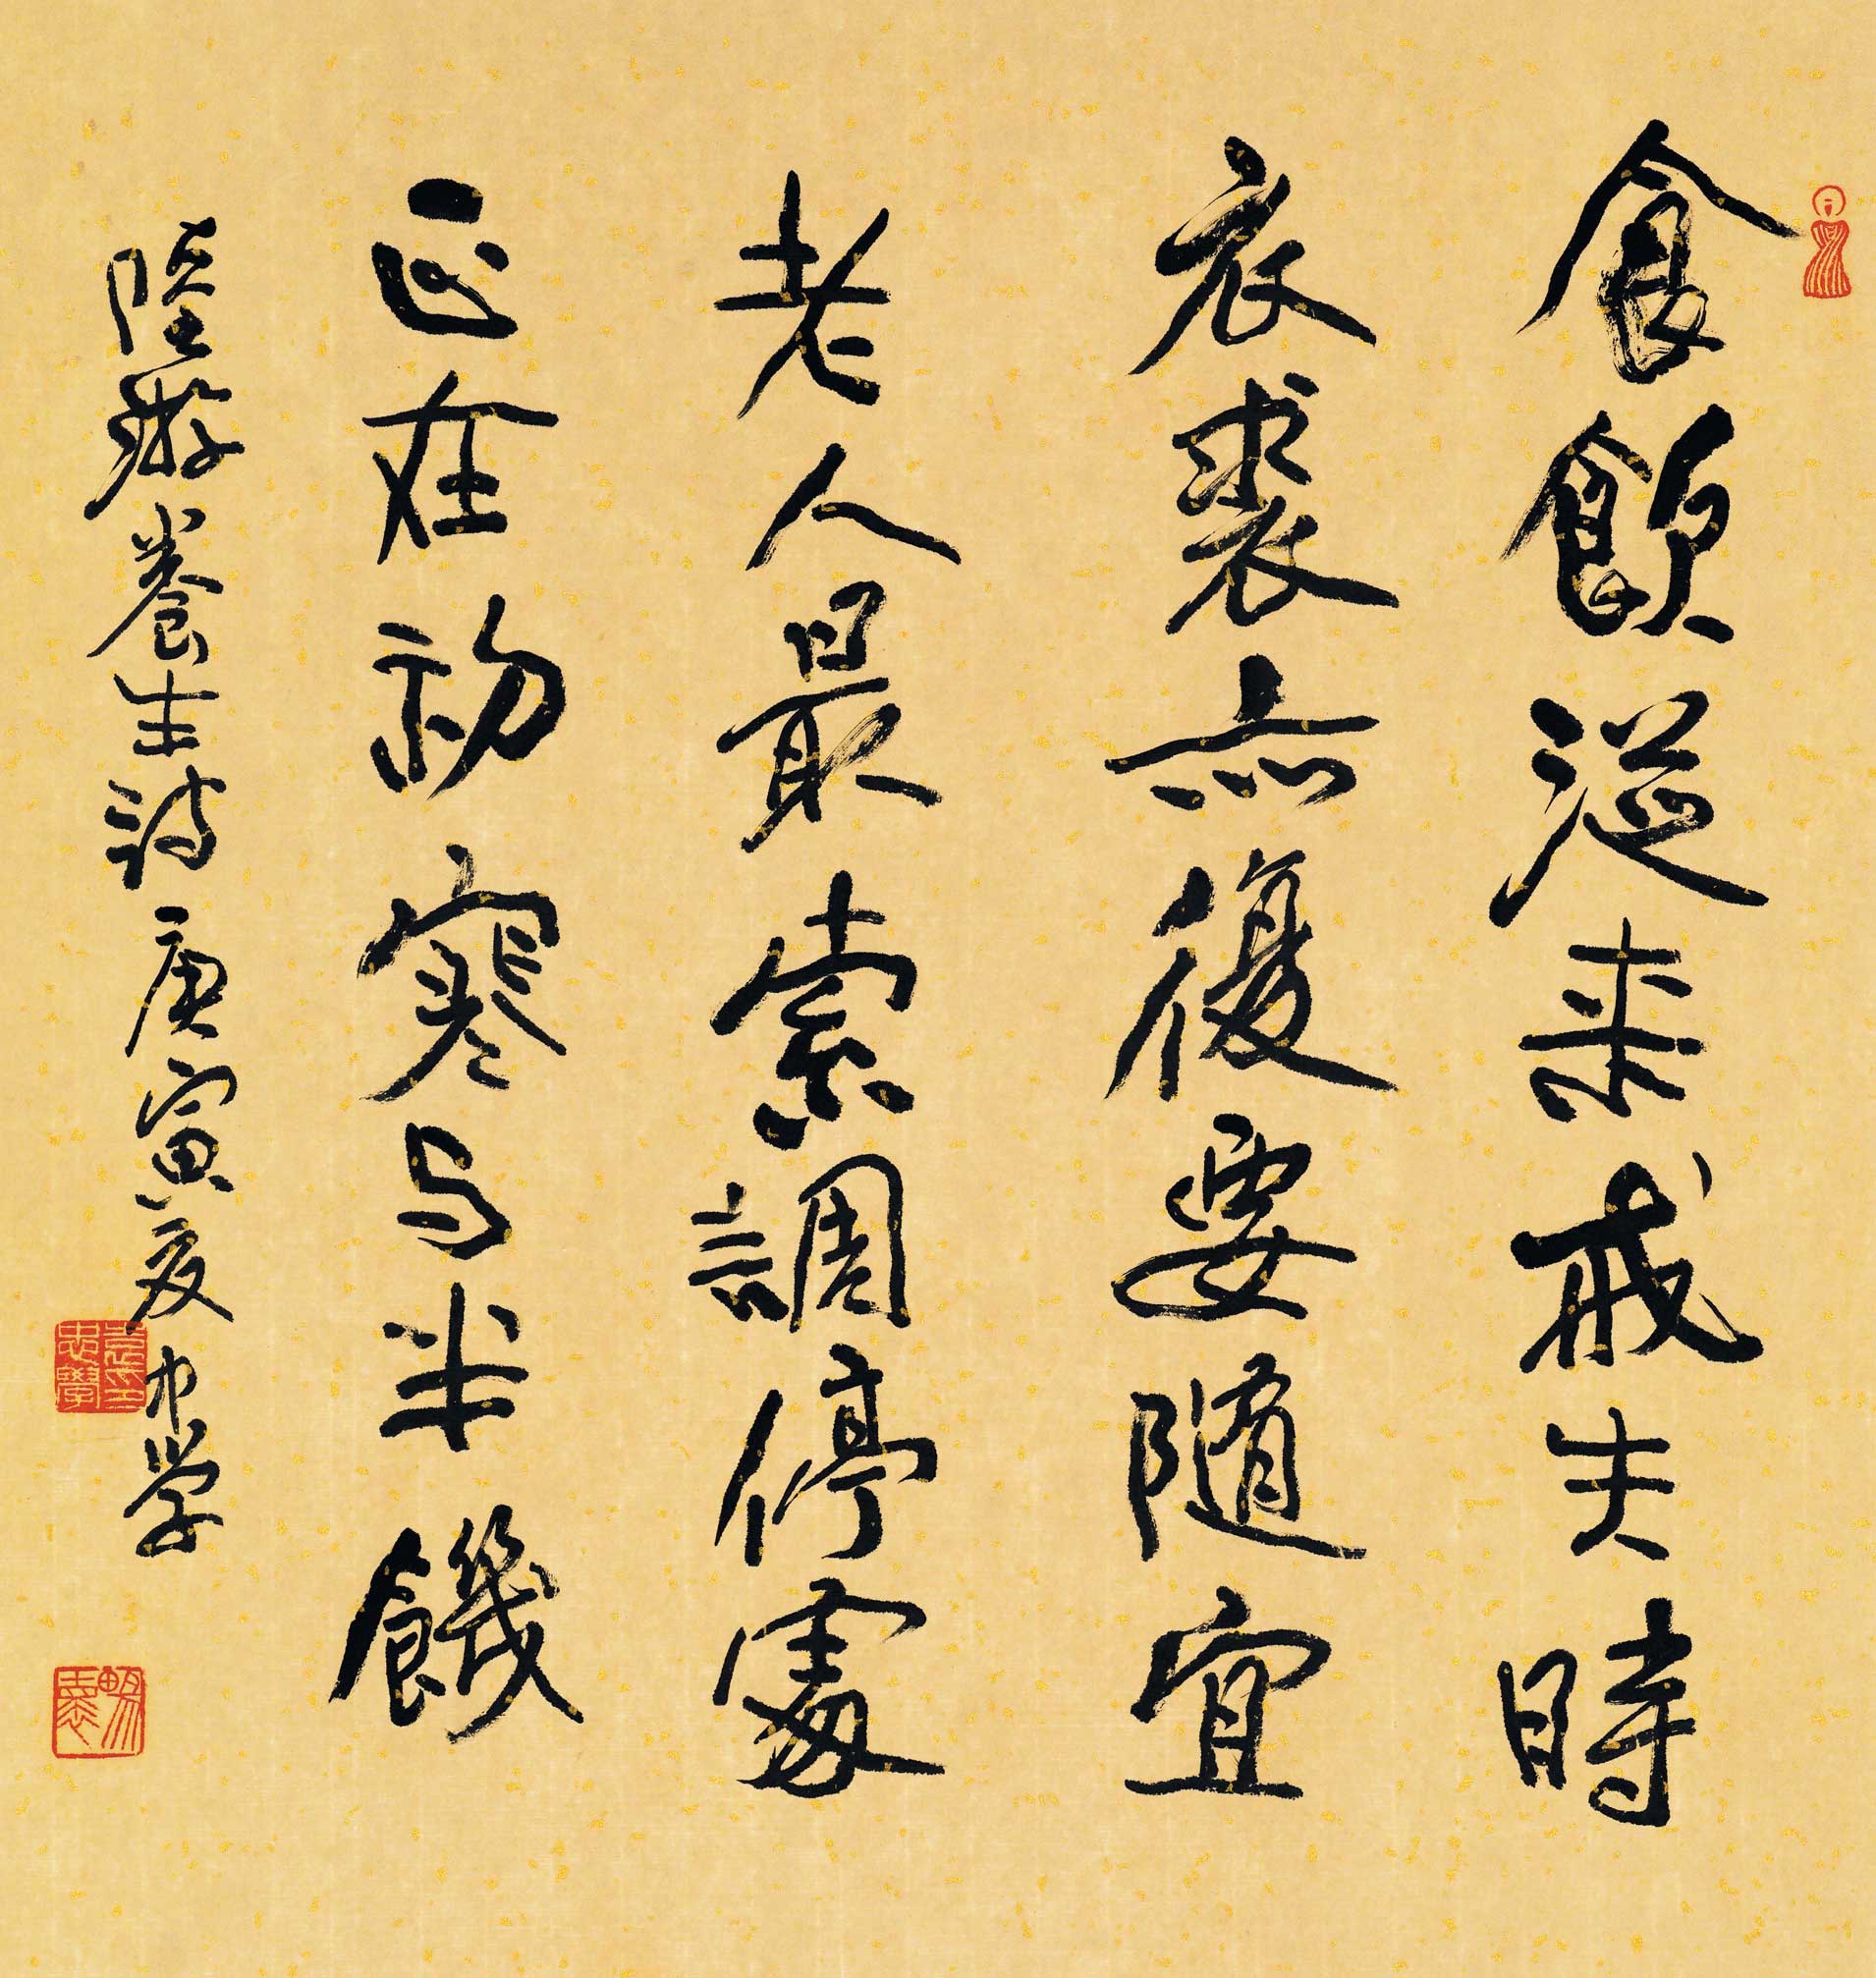 食飲從来戒失時
衣裘亦復要隨宜
老人最索調停處
正在初寒与半饑
陸游養生詩庚寅夏中学